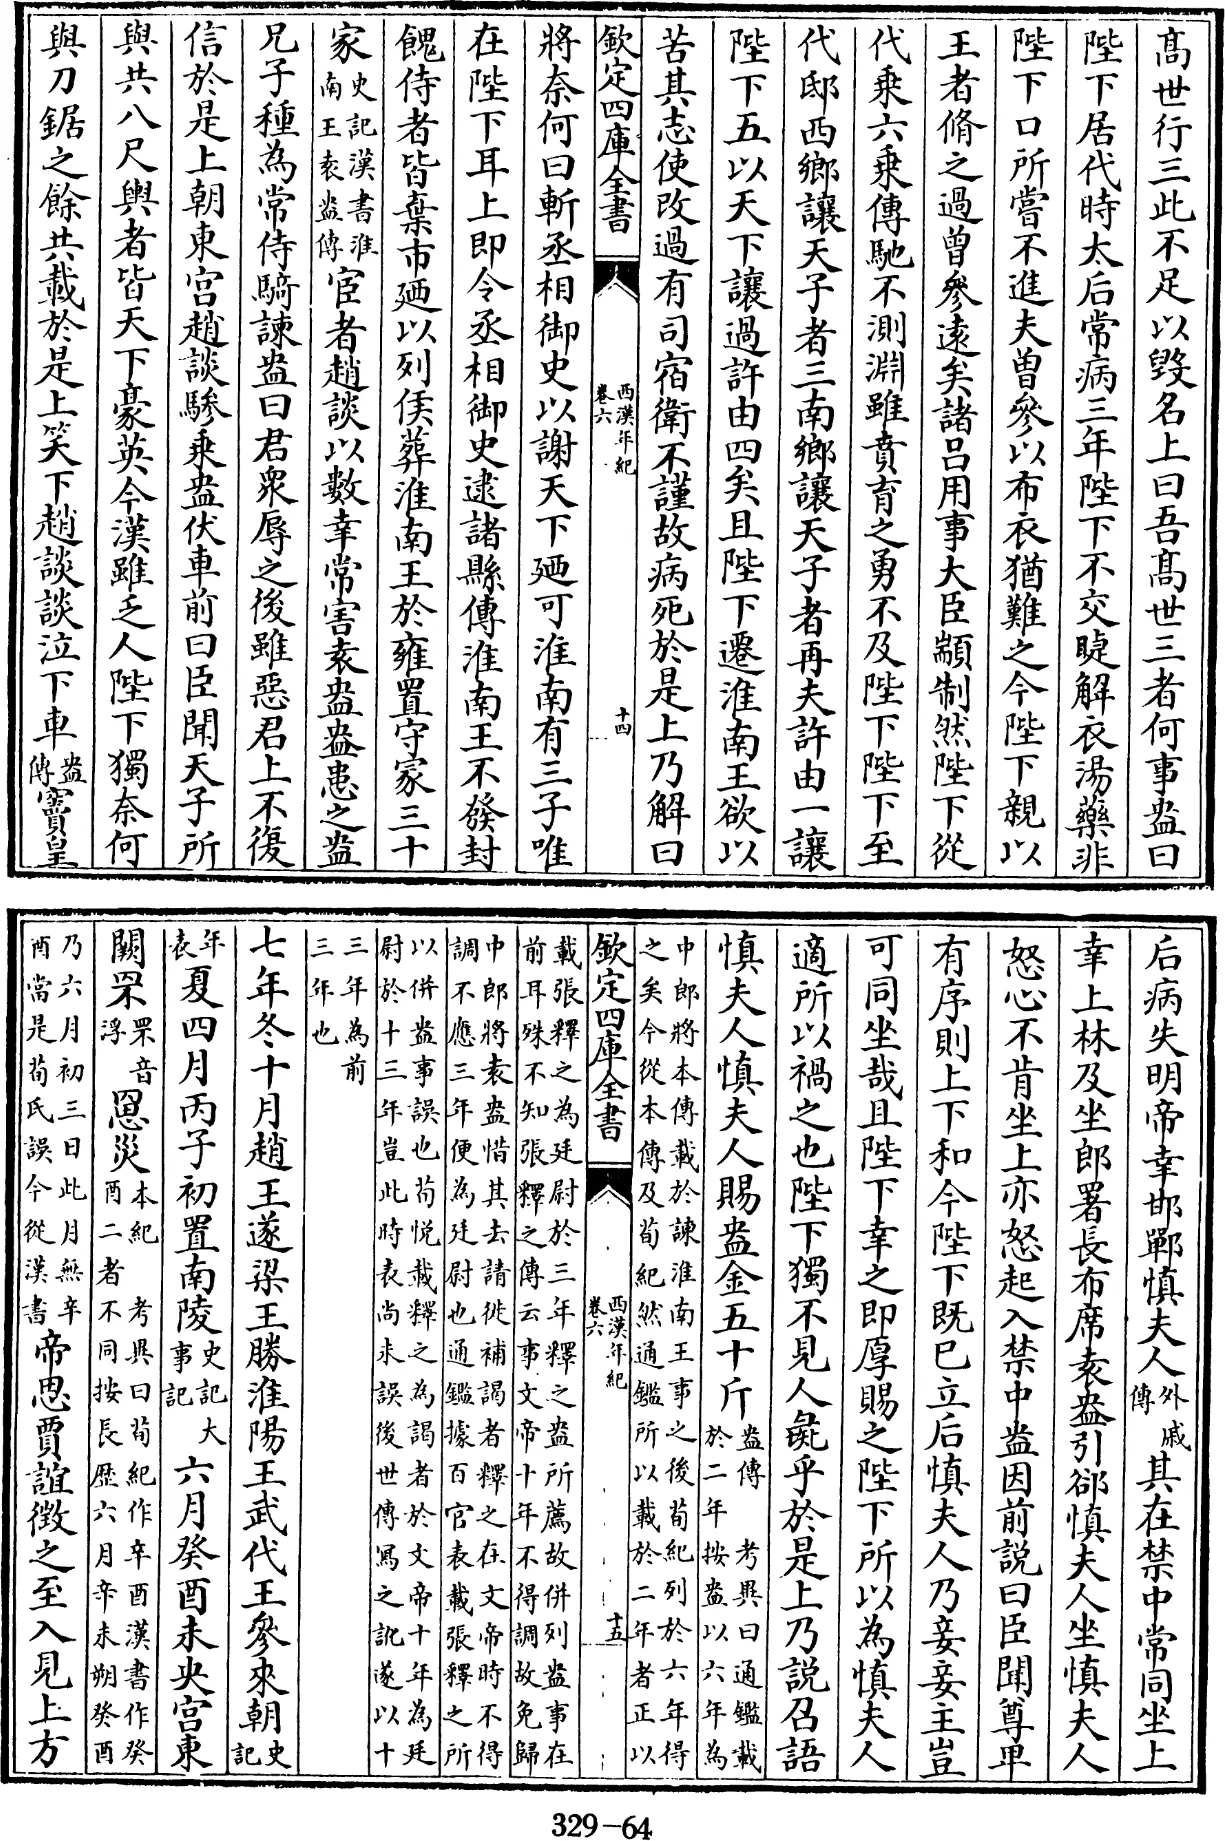 高世行三此不足以毀名上曰吾高世三者何事盎曰
陛下居代時太后常病三年陛下不交睫解衣湯藥非
陛下口所嘗不進夫曽參以布衣猶難之今陛下親以
王者脩之過曾參逺矣諸吕用事大臣顓制然陛下從
代乗六乗傳馳不測淵雖賁育之勇不及陛下陛下至
代邸西鄉讓天子者三南鄉讓天子者再夫許由一讓
陛下五以天下讓過許由四矣且陛下遷淮南王欲以
苦其志使改過有司宿衛不謹故病死於是上乃解曰
欽定四庫全書 西漢年紀 卷六 十四
將奈何曰斬丞相御史以謝天下廼可淮南有三子唯
在陛下耳上即令丞相御史逮諸縣傳淮南王不發封
餽侍者皆棄市廼以列侯葬淮南王於雍置守冢三十
家史記漢書淮南王袁盎傳宦者趙談以數幸常害袁盎盎患之盎
兄子種為常侍騎諫盎曰君衆辱之後雖惡君上不復
信於是上朝東宫趙談驂乗盎伏車前曰臣聞天子所
與共八尺輿者皆天下豪英今漢雖乏人陛下獨奈何
與刀鋸之餘共載於是上笑下趙談談泣下車盎傳竇皇
后病失明帝幸邯鄲慎夫人外戚傳其在禁中常同坐上
幸上林及坐郎署長布席袁盎引郤慎夫人坐慎夫人
怒心不肯坐上亦怒起入禁中盎因前説曰臣聞尊卑
有序則上下和今陛下既已立后慎夫人乃妾妾主豈
可同坐哉且陛下幸之即厚賜之陛下所以為慎夫人
適所以禍之也陛下獨不見人彘乎於是上乃説召語
慎夫人慎夫人賜盎金五十斤盎傳 考異曰通鑑載
於二年按盎以六年為
中郎將本傳載於諫淮南王事之後荀紀列於六年得
之矣今從本傳及荀紀然通鑑所以載於二年者正以
欽定四庫全書 西漢年紀 卷六 十五
載張釋之為廷尉於三年釋之盎所薦故併列盎事在
前耳殊不知張釋之傳云事文帝十年不得調故免歸
中郎將袁盎惜其去請徙補謁者釋之在文帝時不得
調不應三年便為廷尉也通鑑據百官表載張釋之所
以併盎事誤也荀悦載釋之為謁者於文帝十年為廷
尉於十三年豈此時表尚未誤後世傳冩之訛遂以十
三年為前
三年也
七年冬十月趙王遂梁王勝淮陽王武代王參來朝史記
年表夏四月丙子初置南陵史記大事記六月癸酉未央宫東
闕罘罘音浮罳災本紀 考異曰荀紀作辛酉漢書作癸
酉二者不同按長歴六月辛未朔癸酉
乃六月初三日此月無辛
酉當是荀氏誤今從漢書帝思賈誼徴之至入見上方
329-64